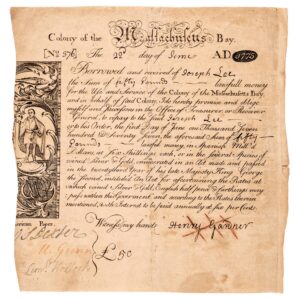 Colony of the Massachusetts Bay.
[No 576] The 22d day of June AD 1775
Borrowed and received of Joseph Lee
the Sum of fifty Pounds lawfull money
for the Use and Service of the Colony of the Massachusetts Bay,
and in behalf of said Colony, I do hereby promise and oblige
myself and Successors in the Office of Treasurer or Receiver
General, to repay to the said Joseph Lee
or to his Order, the first Day of June One Thousand Seven
hundred & Seventy seven, the aforesaid Sum of fifty
Pounds lawful money, in Spanish Mill'd
Dollars, at Six Shillings each, or in the several Species of
coined Silver & Gold, enumerated in an Act made and passed
in the twenty third Year of his late Majesty King George
the Second, intitled An Act for ascertaining the Rates at
which coined Silver & Gold, English half pence & farthings may
pass within this Government, and according to the Rates therein
mentioned, with Interest to be paid annually at six per Cent.
Witness my hand Henry Gardner
£50